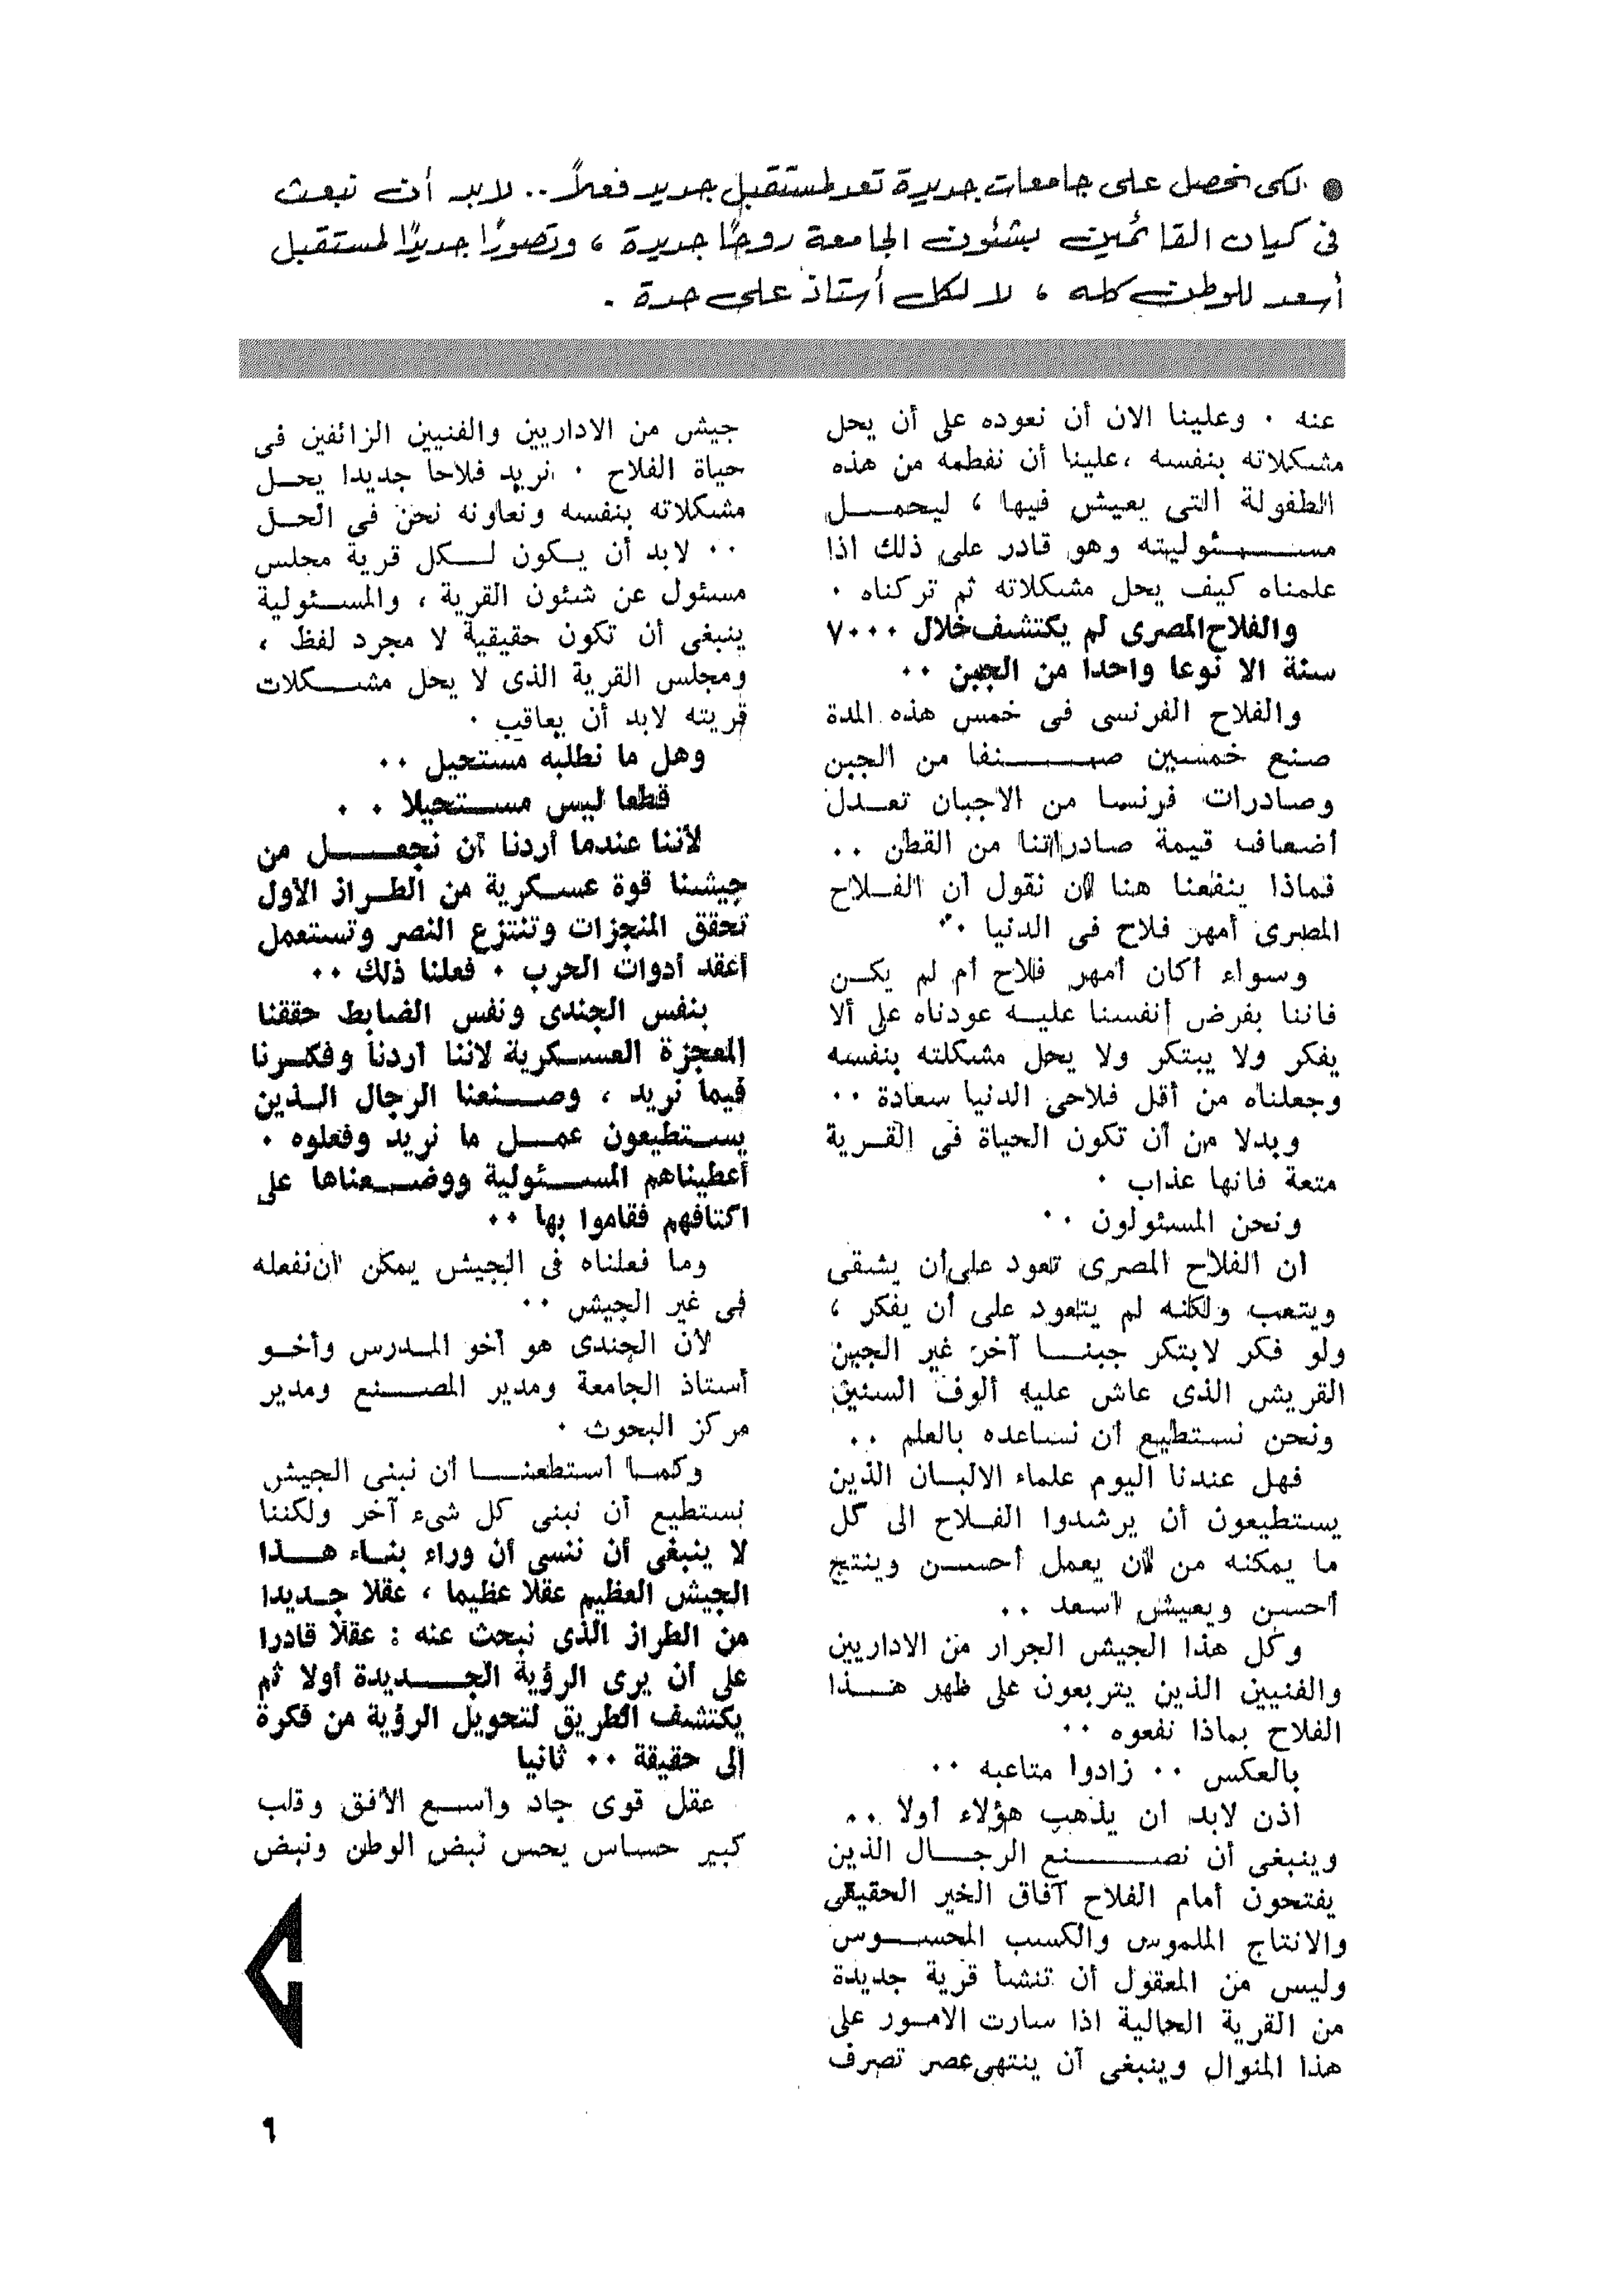 ● لكى نحصل على جامعات جديدة تعد لمستقبل جديد فعلاً .. لابد أن نبعث
فى كيان القائمين بشئون الجامعة روحًا جديدة ، وتصورًا جديدًا لمستقبل
أسعد للوطن كله ، لا لكل أستاذ على حدة .
عنه ٠ وعلينا الان أن نعوده على أن يحل
مشكلاته بنفسه ،علينا أن نفطمه من هذه
الطفولة التى يعيش فيها ، ليحمـــل
مســـئوليته وهو قادر على ذلك اذا
علمناه كيف يحل مشكلاته ثم تركناه ٠
والفلاح المصرى لم يكتشف خلال ٧٠٠٠
سنة الا نوعا واحدا من الجبن ٠٠
والفلاح الفرنسى فى خمس هذه المدة
صنع خمسين صـــنفا من الجبن
وصادرات فرنسا من الاجبان تعــدل
أضعاف قيمة صادراتنا من القطن ٠٠
فماذا ينفعنا هنا لأن نقول أن الفــلاح
المصرى أمهر فلاح فى الدنيا ٠٠
وسواء أكان أمهر فلاح أم لم يكــن
فاننا بفرض أنفسنا عليــه عودناه على ألا
يفكر ولا يبتكر ولا يحل مشكلته بنفسه
وجعلناه من أقل فلاحى الدنيا سعادة ٠٠
وبدلا من أن تكون الحياة فى القــرية
متعة فانها عذاب ٠
ونحن المسئولون ٠٠
ان الفلاح المصرى تعود على أن يشقى
ويتعب ولكنه لم يتعود على أن يفكر ،
ولو فكر لابتكر جبنـــا آخر غير الجبن
القريش الذى عاش عليه ألوف السنين
ونحن نستطيع أن نساعده بالعلم ٠٠
فهل عندنا اليوم علماء الالبــان الذين
يستطيعون أن يرشدوا الفــلاح الى كل
ما يمكنه من لأن يعمل أحســن وينتج
أحسن ويعيش أسعد ٠٠
وكل هذا الجيش الجرار من الاداريين
والفنيين الذين يتربعون على ظهر هــذا
الفلاح بماذا نفعوه ٠٠
بالعكس ٠٠ زادوا متاعبه ٠٠
اذن لابد أن يذهب هؤلاء أولا ٠٠
وينبغى أن نصـــنع الرجــال الذين
يفتحون أمام الفلاح آفاق الخير الحقيقى
والانتاج الملموس والكسب المحســوس
وليس من المعقول أن تنشأ قرية جديدة
من القرية الحالية اذا سارت الامــور على
هذا المنوال وينبغى أن ينتهى عصر تصرف
جيش من الاداريين والفنيين الزائفين فى
حياة الفلاح ٠ نريد فلاحا جديدا يحــل
مشكلاته بنفسه ونعاونه نحن فى الحــل
٠٠ لابد أن يــكون لــكل قرية مجلس
مسئول عن شئون القرية ، والمســئولية
ينبغى أن تكون حقيقية لا مجرد لفظ ،
ومجلس القرية الذى لا يحل مشــكلات
قريته لابد أن يعاقب ٠
وهل ما نطلبه مستحيل ٠٠
قطعا ليس مســتحيلا ٠ ٠
لأننا عندما أردنا أن نجعـــل من
جيشنا قوة عســكرية من الطــراز الأول
تحقق المنجزات وتنتزع النصر وتستعمل
أعقد أدوات الحرب ٠ فعلنا ذلك ٠٠
بنفس الجندى ونفس الضابط حققنا
المعجزة العســكرية لاننا أردنا وفكــرنا
فيما نريد ، وصــنعنا الرجال الــذين
يســتطيعون عمــل ما نريد وفعلوه ٠
أعطيناهم المســئولية ووضــعناها على
اكتافهم فقاموا بها ٠٠
وما فعلناه فى الجيش يمكن أن نفعله
فى غير الجيش ٠٠
لأن الجندى هو أخو المــدرس وأخــو
أستاذ الجامعة ومدير المصــنع ومدير
مركز البحوث ٠
وكمــا استطعنــا أن نبنى الجيش
نستطيع أن نبنى كل شىء آخر ولكننا
لا ينبغى أن ننسى أن وراء بنــاء هــذا
الجيش العظيم عقلا عظيما ، عقلا جــديدا
من الطراز الذى نبحث عنه : عقلا قادرا
على أن يرى الرؤية الجـــديدة أولا ثم
يكتشف الطريق لتحويل الرؤية من فكرة
إلى حقيقة ٠٠ ثانيا
عقل قوى جاد واســع الأفق وقلب
كبير حساس يحس نبض الوطن ونبض
٦